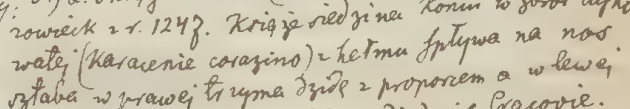 rowieck z r. 1247. Książe siedzi na koniu w zbroi
watej (karacenie corazino) z hełmu spływa na nos
sztaba w prawej trzyma dzidę z proporcem a w lewej
Cracovie.